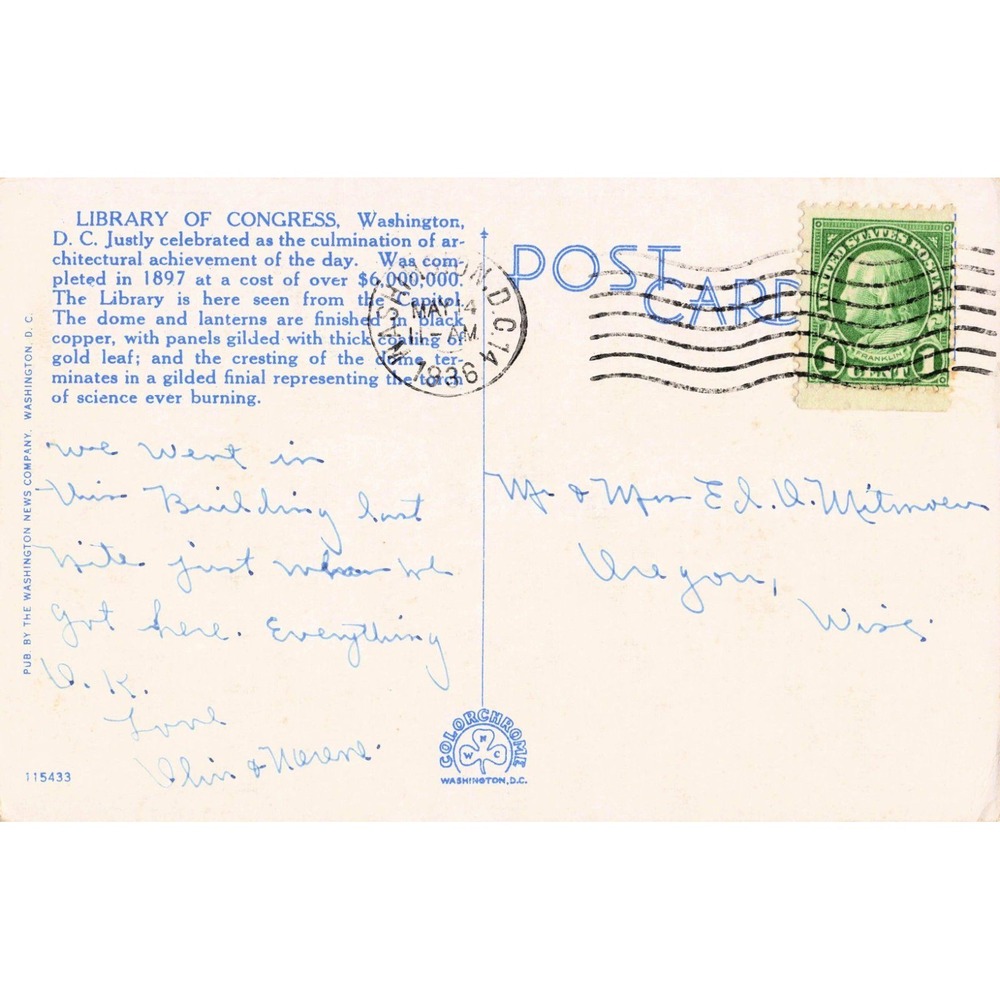 LIBRARY OF CONGRESS, Washington,
D. C. Justly celebrated as the culmination of ar-
chitectural achievement of the day. Was com-
pleted in 1897 at a cost of over $6,000,000.
The Library is here seen from the Capitol.
The dome and lanterns are finished in black
copper, with panels gilded with thick coating of
gold leaf; and the cresting of the dome ter-
minates in a gilded finial representing the torch
of science ever burning.
We Went in
this Building last
nite just when we
got here. Everything
O. K.
Love
&
115433
PUB. BY THE WASHINGTON NEWS COMPANY, WASHINGTON, D. C.
WASHINGTON, D.C. 14
MAY 4
11-AM
1936
POST
CARD
UNITED STATES POSTAGE
FRANKLIN
1 CENT 1
Mr & Mrs Ed. O.
Oregon,
Wisc.
COLORCHROME
N
W C
WASHINGTON, D.C.